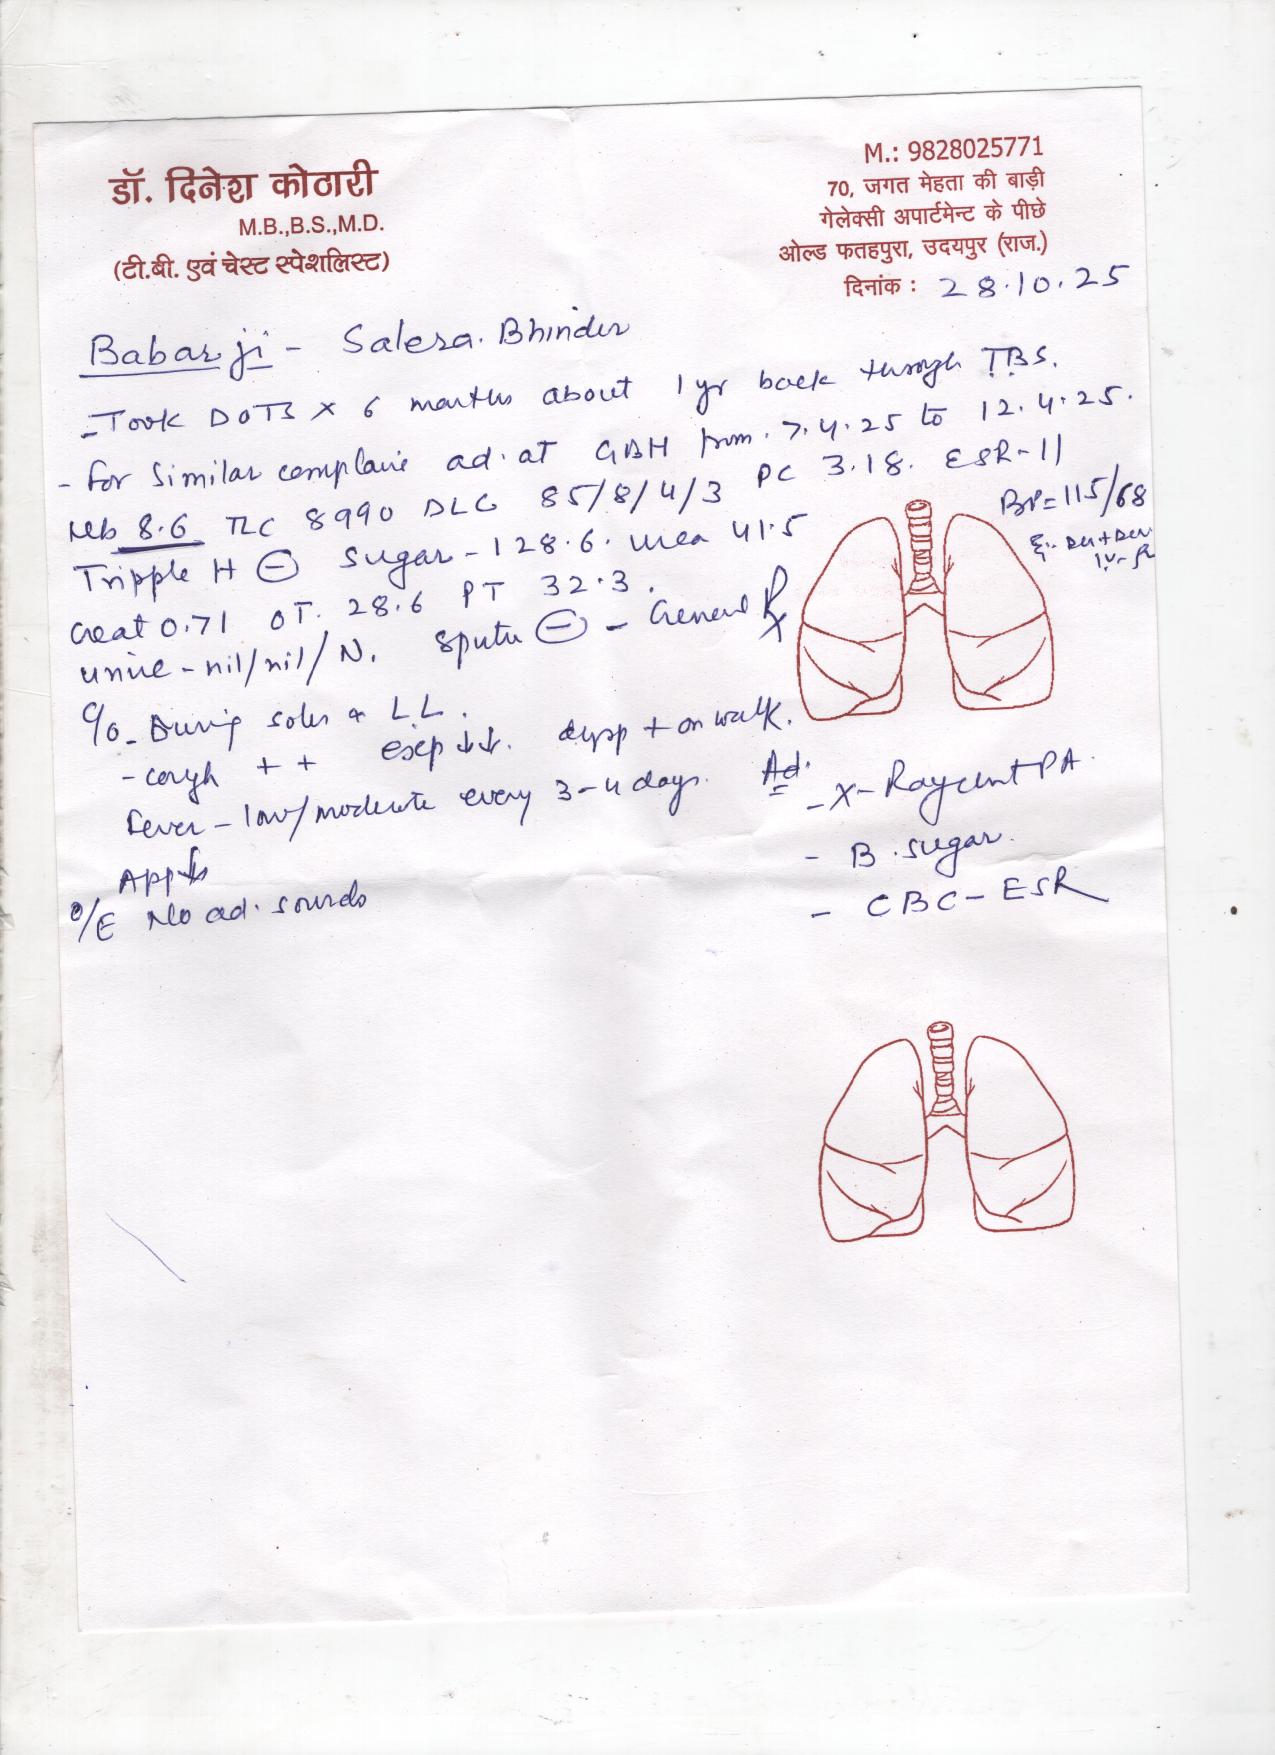 डॉ. दिनेश कोठारी
M.B.,B.S.,M.D.
(टी.बी. एवं चेस्ट स्पेशलिस्ट)
M.: 9828025771
70, जगत मेहता की बाड़ी
गेलेक्सी अपार्टमेन्ट के पीछे
ओल्ड फतहपुरा, उदयपुर (राज.)
दिनांक : 28.10.25
Babar ji - Salera. Bhinder
- Took DOTS x 6 months about 1 yr back through TBS.
- For similar complain ad. at GBH from. 7.4.25 to 12.4.25.
Hb 8.6 TLC 8990 DLC 85/8/4/3 PC 3.18. ESR-11
Tripple H ⊖ Sugar - 128.6. urea 41.5
BP = 115/68
creat 0.71 OT. 28.6 PT 32.3.
urine - nil/nil/N. Sputu ⊖ - General Rx
C/o - During soles & L.L.
- cough ++ exep ↓↓. dysp + on walk.
Fever - low/moderate every 3-4 days.
App ↓
O/E No ad. sounds
Ad.
- X-Ray cent PA.
- B. sugar.
- CBC - ESR